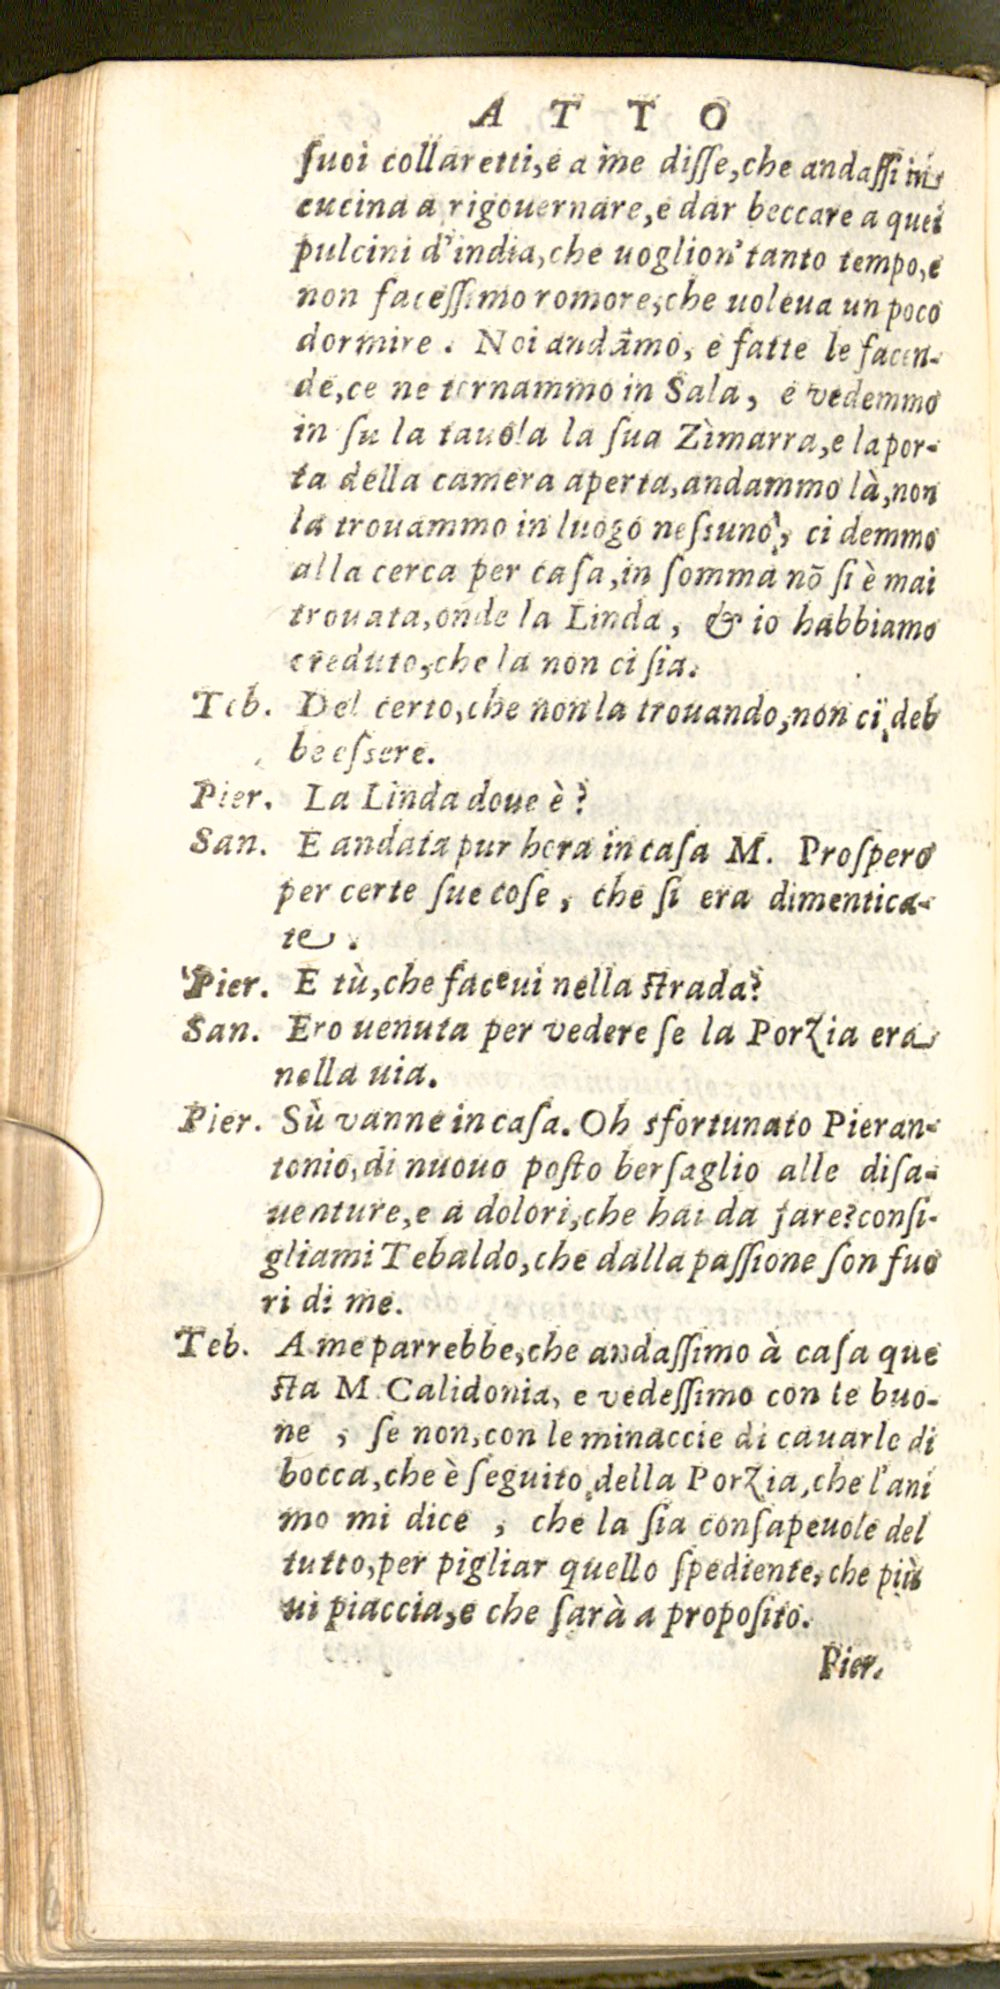 ATTO
ſuoi collaretti,e a me diſſe,che andaſſi in
cucina a rigouernare,e dar beccare a quei
pulcini d'india,che uoglion'tanto tempo,e
non faceſſimo romore,che uoleua un poco
dormire. Noi andāmo, e fatte le facen-
de,ce ne tornammo in Sala, e vedemmo
in ſu la tauola la ſua Zimarra,e la por-
ta della camera aperta,andammo là,non
la trouammo in luogo neſsuno, ci demmo
alla cerca per caſa,in ſomma nō ſi è mai
trouata,onde la Linda, & io habbiamo
creduto,che la non ci ſia.
Teb. Del certo,che non la trouando,non ci deb
be eſsere.
Pier. La Linda doue è?
San. E andata pur hora in caſa M. Proſpero
per certe ſue coſe, che ſi era dimentica-
te.
Pier. E tù,che faceui nella ſtrada?
San. Ero uenuta per vedere ſe la Porzia era
nella uia.
Pier. Sù vanne in caſa. Oh sfortunato Pieran-
tonio,di nuouo poſto berſaglio alle diſa-
uenture,e a dolori,che hai da fare?conſi-
gliami Tebaldo,che dalla paſſione ſon fuo
ri di me.
Teb. A me parrebbe,che andaſſimo à caſa que
ſta M Calidonia, e vedeſſimo con le buo-
ne, ſe non,con le minaccie di cauarle di
bocca,che è ſeguito della Porzia,che l'ani
mo mi dice, che la ſia conſapeuole del
tutto,per pigliar quello ſpediente,che più
ui piaccia,e che ſarà a propoſito.
Pier.